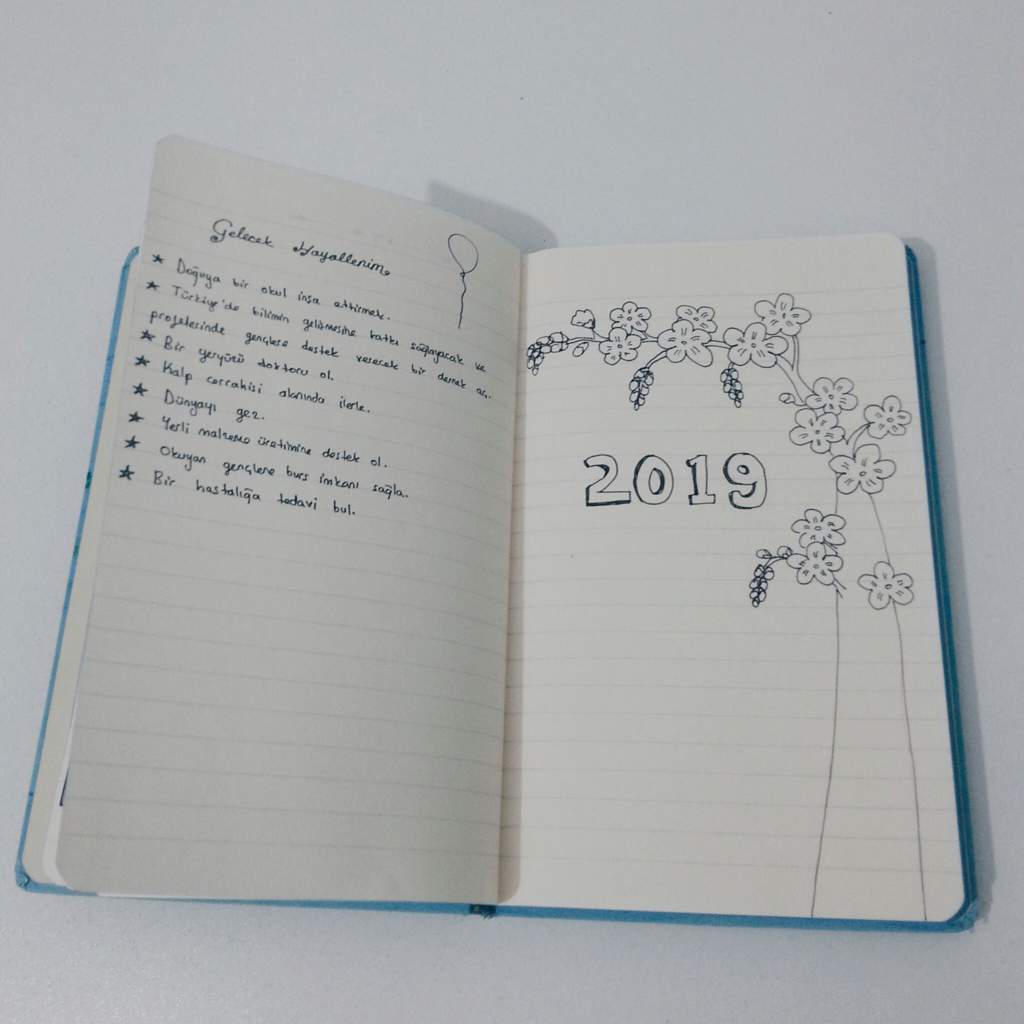 Gelecek Hayallerim
★ Doğuya bir okul inşa ettirmek.
★ Türkiye'de bilimin gelişmesine katkı sağlayacak ve
projelerinde gençlere destek verecek bir dernek aç.
★ Bir yeryüzü doktoru ol.
★ Kalp cerrahisi alanında ilerle.
★ Dünyayı gez.
★ Yerli malzeme üretimine destek ol.
★ Okuyan gençlere burs imkanı sağla.
★ Bir hastalığa tedavi bul.
2019